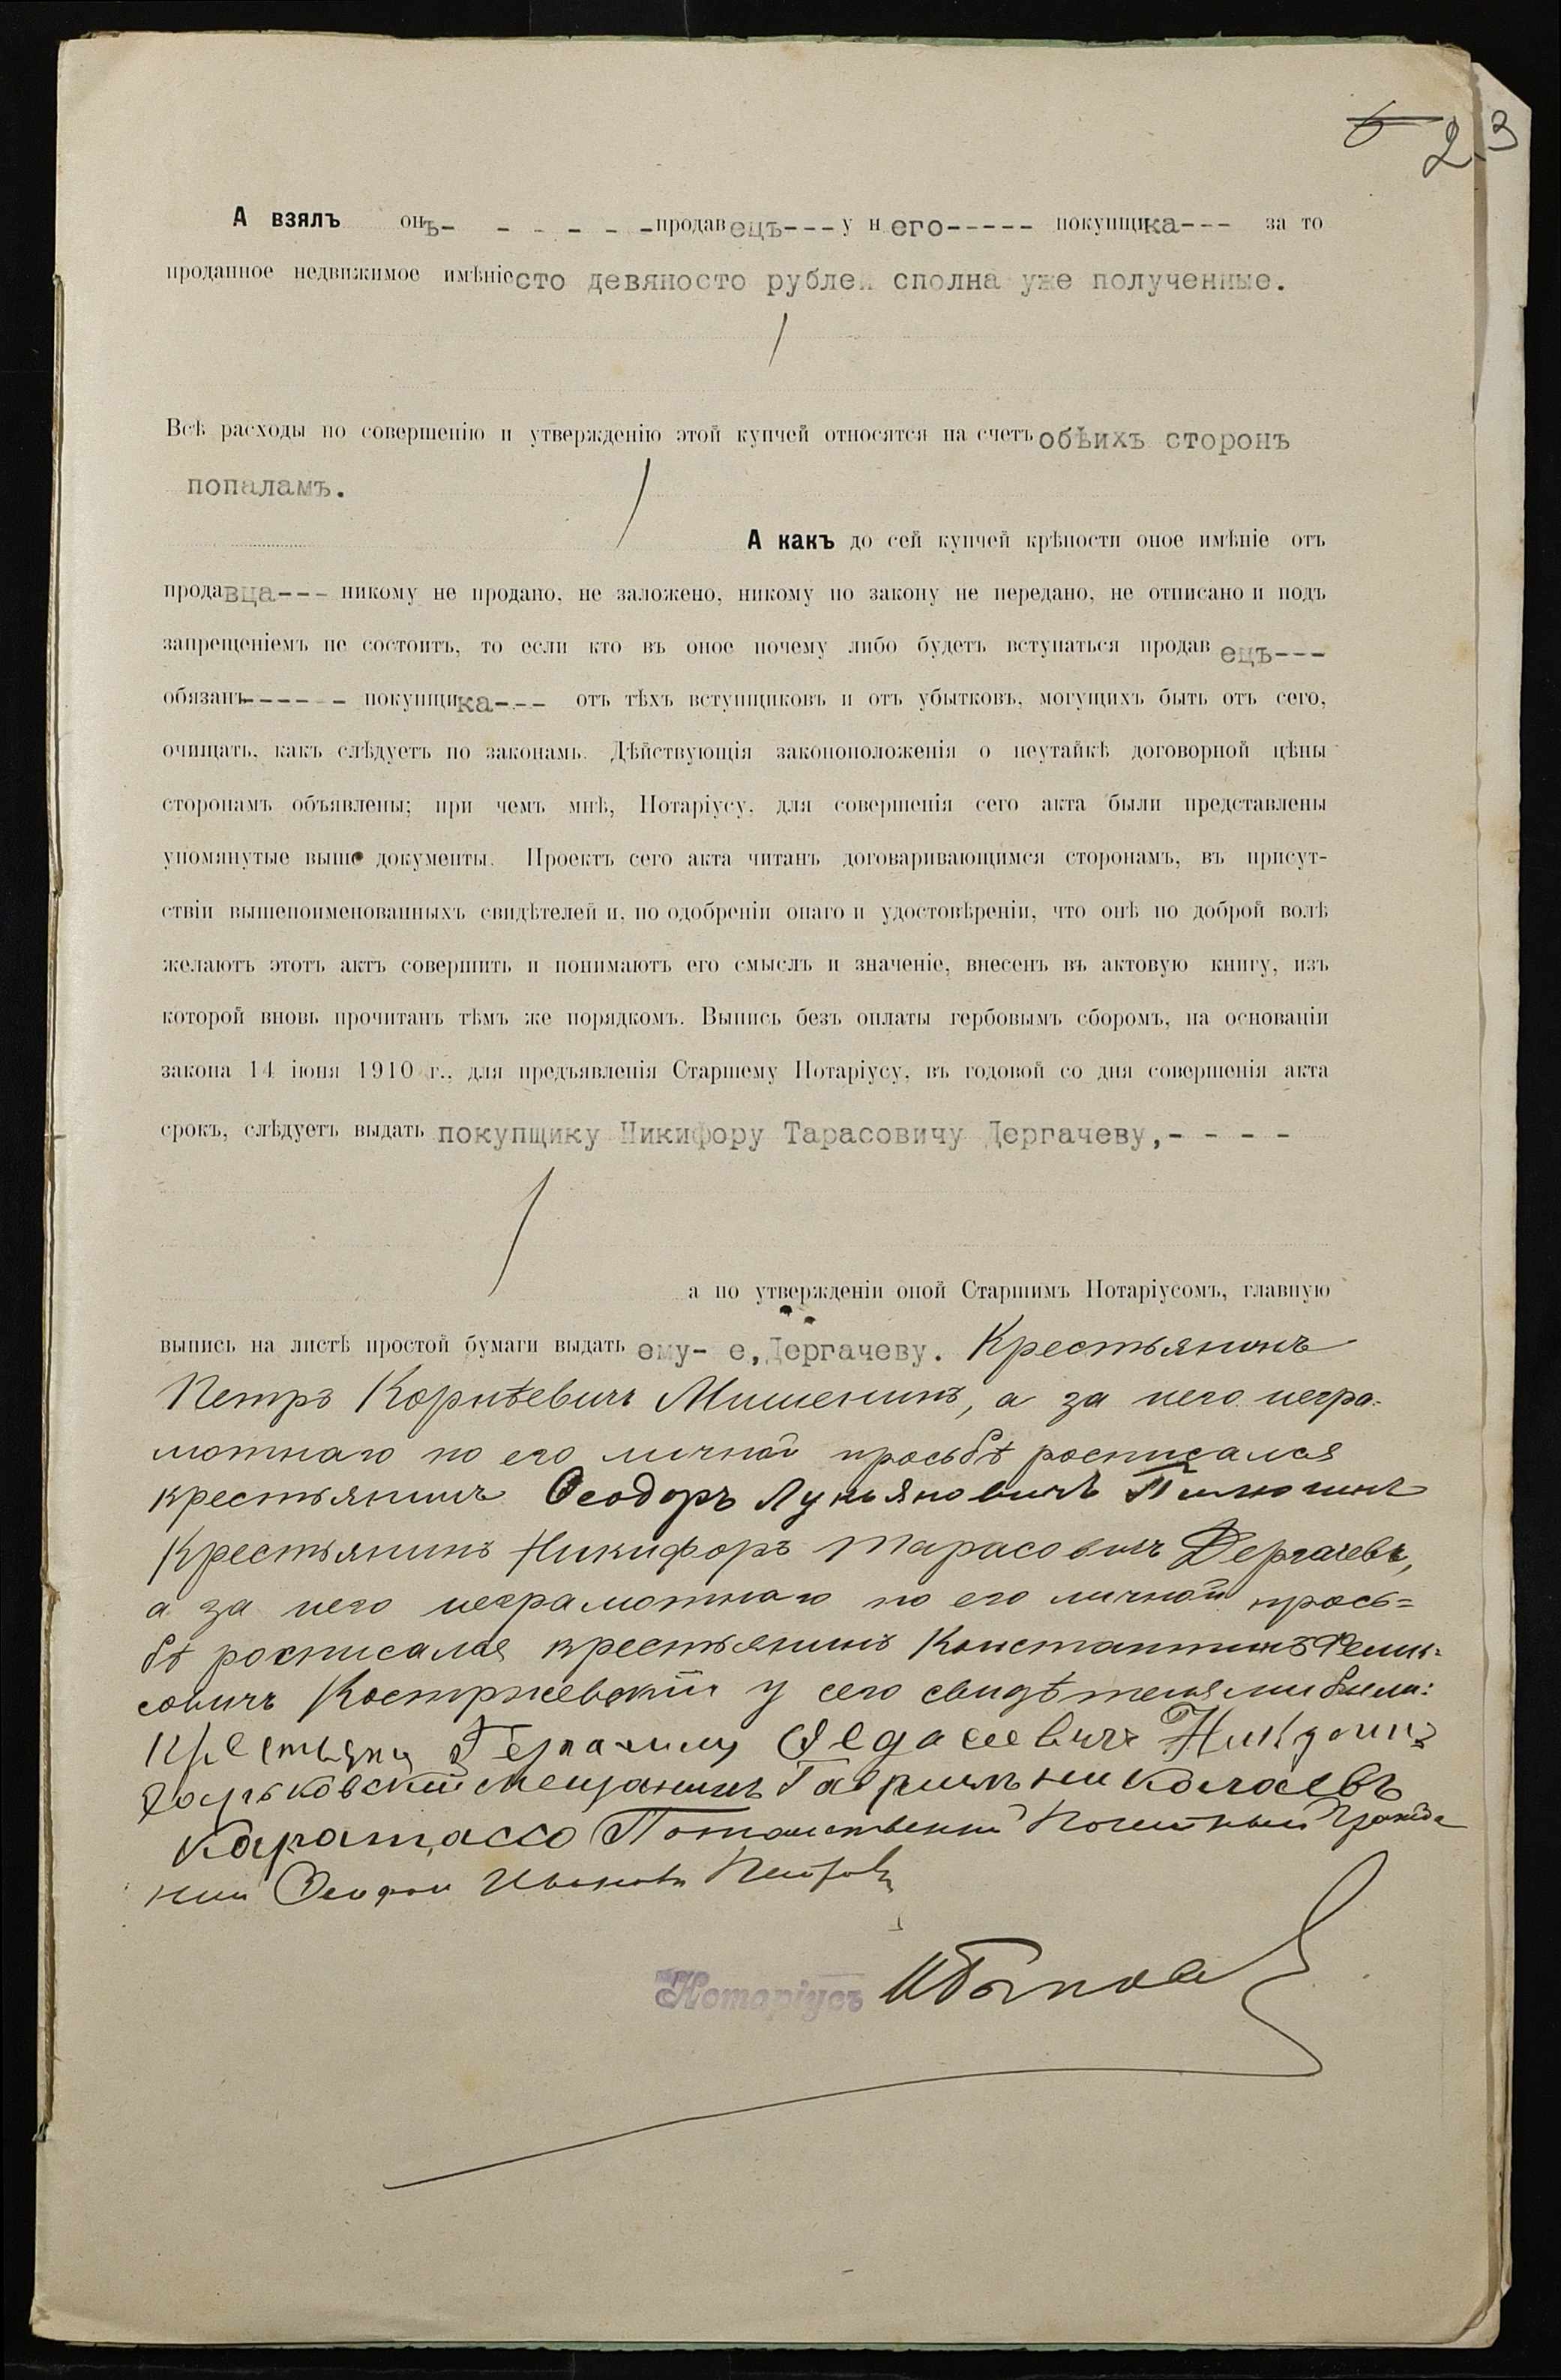 6 23
А взялъ онъ- - - - - - -продавецъ--- у него----- покупщика--- за то
проданное недвижимое имѣніе сто девяносто рублей сполна уже полученные.
Всѣ расходы по совершенію и утвержденію этой купчей относятся на счетъ обѣихъ сторонъ
попаламъ.
А какъ до сей купчей крѣпости оное имѣніе отъ
продавца--- никому не продано, не заложено, никому по закону не передано, не отписано и подъ
запрещеніемъ не состоитъ, то если кто въ оное почему либо будетъ вступаться продавецъ---
обязанъ------ покупщика--- отъ тѣхъ вступщиковъ и отъ убытковъ, могущихъ быть отъ сего,
очищать, какъ слѣдуетъ по законамъ. Дѣйствующія законоположенія о неутайкѣ договорной цѣны
сторонамъ объявлены; при чемъ мнѣ, Нотаріусу, для совершенія сего акта были представлены
упомянутые выше документы. Проектъ сего акта читанъ договаривающимся сторонамъ, въ присут-
ствіи вышепоименованныхъ свидѣтелей и, по одобреніи онаго и удостовѣреніи, что онѣ по доброй волѣ
желаютъ этотъ актъ совершить и понимаютъ его смыслъ и значеніе, внесенъ въ актовую книгу, изъ
которой вновь прочитанъ тѣмъ же порядкомъ. Выпись безъ оплаты гербовымъ сборомъ, на основаніи
закона 14 іюня 1910 г., для предъявленія Старшему Нотаріусу, въ годовой со дня совершенія акта
срокъ, слѣдуетъ выдать покупщику Никифору Тарасовичу Дергачеву,- - - -
а по утвержденіи оной Старшимъ Нотаріусомъ, главную
выпись на листѣ простой бумаги выдать ему- е,Дергачеву. Крестьянинъ
Петръ Корнѣевичъ Мишенинъ, а за него негра-
мотнаго по его личной просьбѣ росписался
крестьянинъ Ѳеодоръ Лукьяновичъ Пилюгинъ
Крестьянинъ Никифоръ Тарасовичъ Дергачевъ,
а за него неграмотнаго по его личной прось=
бѣ росписался крестьянинъ Константинъ
совичъ Костржевскій У сего свидѣтелями были:
Никулинъ
Харьковскій мещанинъ Гавриилъ Николаевъ
Каратассо Потомственный Почетный Гражда
нинъ Ивановъ Петровъ
Нотаріусъ